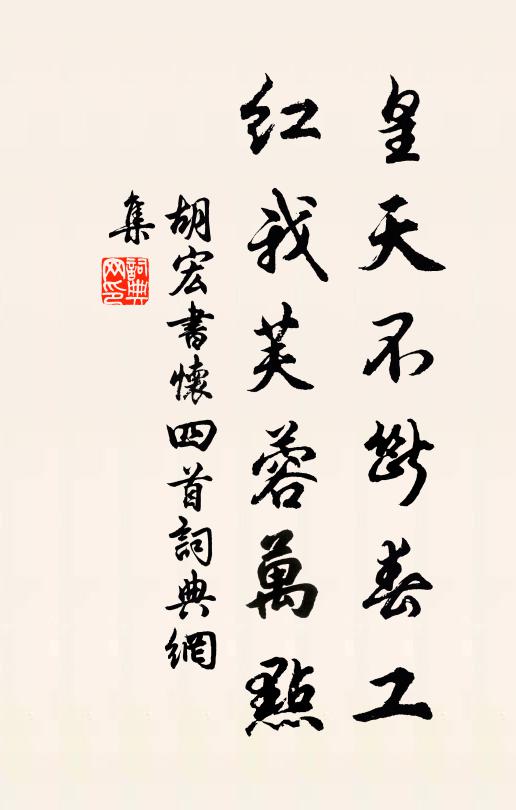 皇天不斷春工
紅我芙蓉萬點
胡宏書懷四首詞典網
集
詞典网印